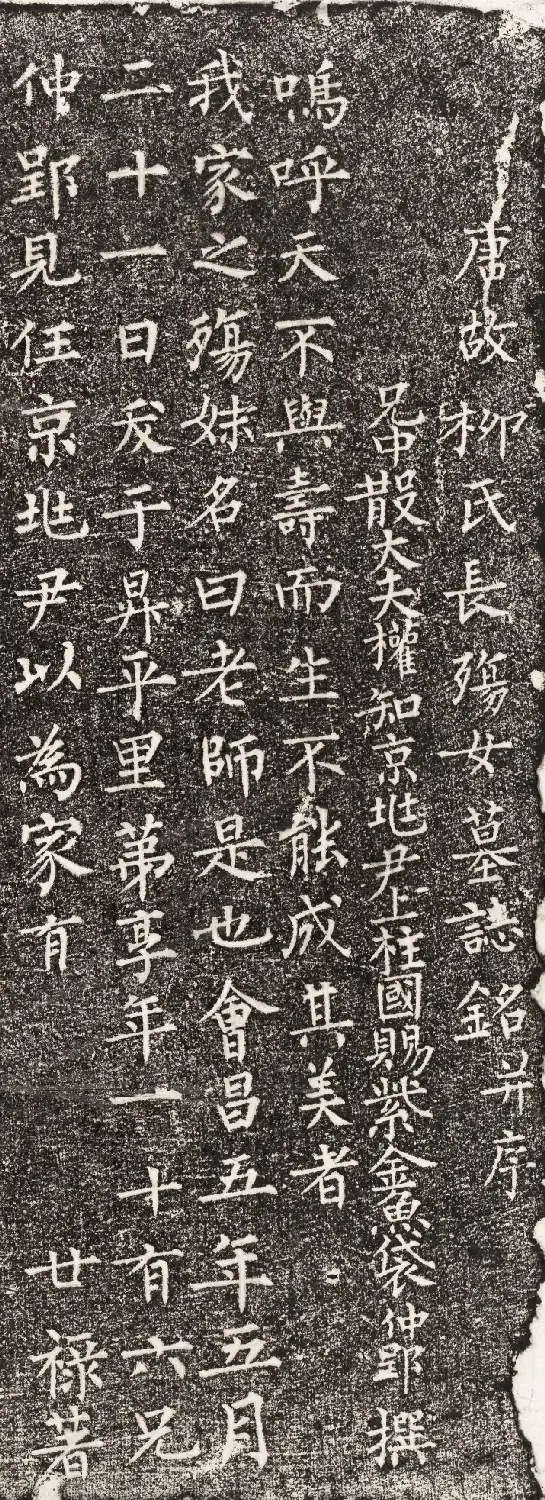 唐故柳氏長殤女墓誌銘并序
兄中散大夫權知京兆尹上柱國賜紫金魚袋仲郢撰
嗚呼天不與壽而生不能成其美者
我家之殤妹名曰老師是也會昌五年五月
二十一日歿于昇平里苐享年一十有六兄
仲郢見任京兆尹以為家有 廿祿著